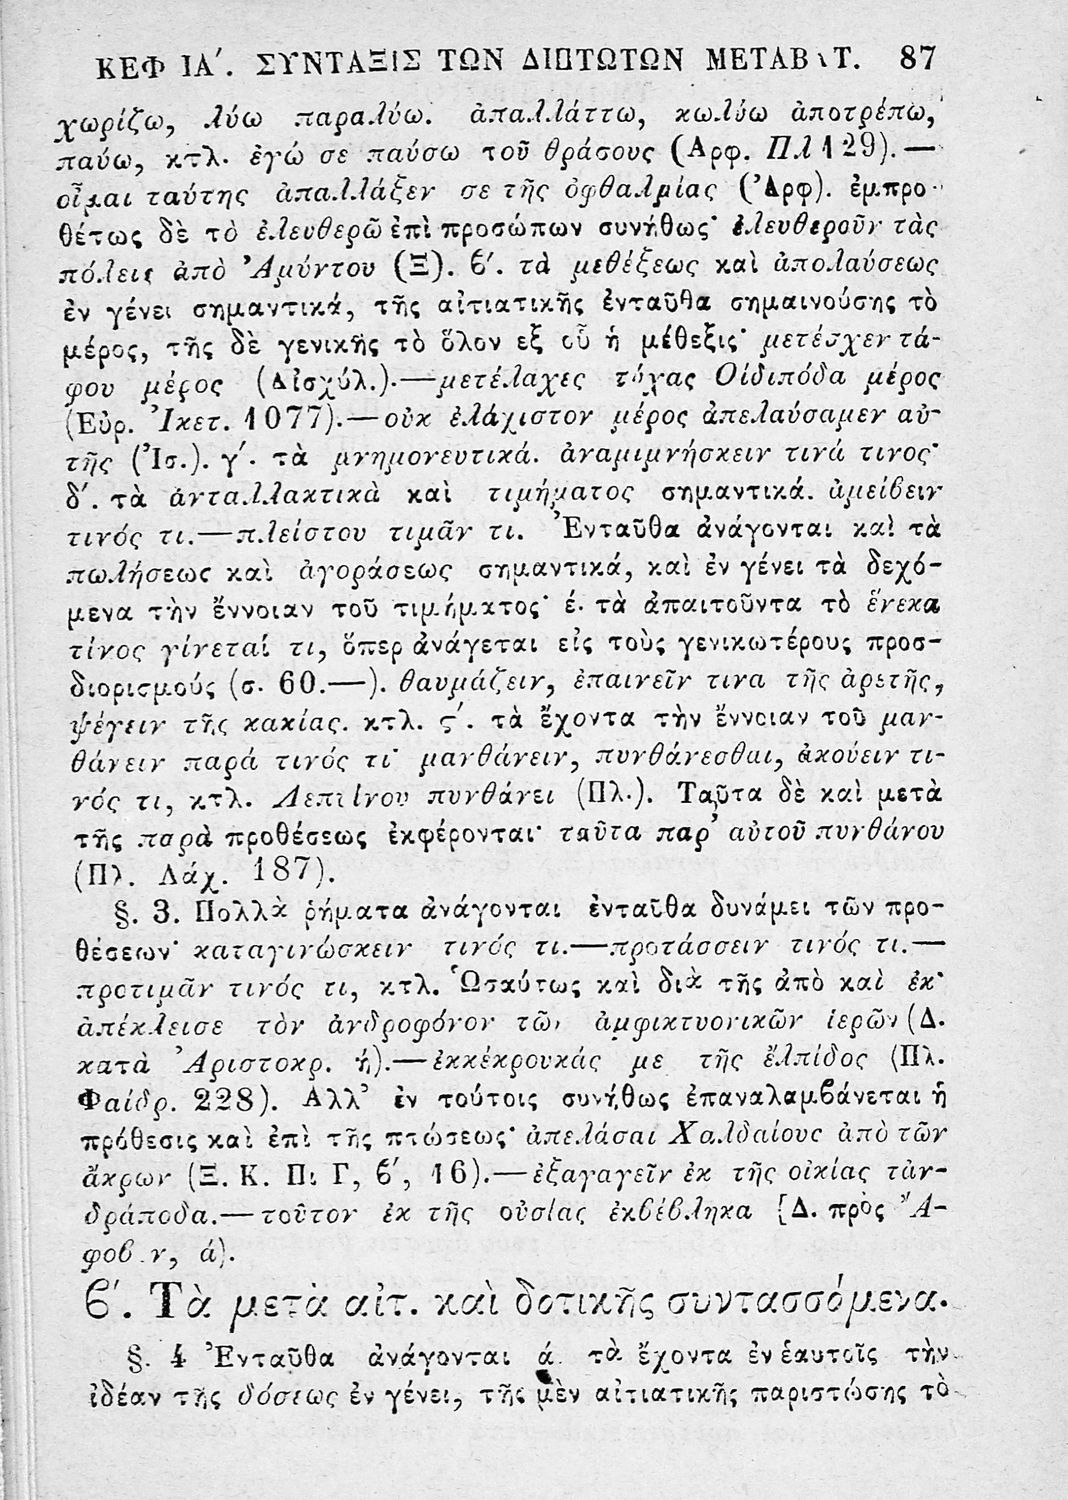 ΚΕΦ ΙΑ΄. ΣΥΝΤΑΞΙΣ ΤΩΝ ΔΙΠΤΩΤΩΝ ΜΕΤΑΒΑΤ. 87
χωρίζω, λύω παραλύω. ἀπαλλάττω, κωλύω ἀποτρέπω,
παύω, κτλ. ἐγώ σε παύσω τοῦ θράσους (Αρφ. Πλ 129).—
οἶμαι ταύτης ἀπαλλάξεν σε τῆς ὀφθαλμίας (Ἀρφ). ἐμπρο-
θέτως δὲ τὸ ἐλευθερῶ ἐπὶ προσώπων συνήθως· ἐλευθεροῦν τὰς
πόλεις ἀπὸ Ἀμύντου (Ξ). ϐ΄. τὰ μεθέξεως καὶ ἀπολαύσεως
ἐν γένει σημαντικά, τῆς αἰτιατικῆς ἐνταῦθα σημαινούσης τὸ
μέρος, τῆς δὲ γενικῆς τὸ ὅλον εξ οὗ ἡ μέθεξις· μετέσχεν τά-
φου μέρος (Αἰσχύλ.).—μετέλαχες τύχας Οἰδιπόδα μέρος
(Εὐρ. Ἰκετ. 1077).—οὐκ ἐλάχιστον μέρος ἀπελαύσαμεν αὐ-
τῆς (Ἰσ.). γ΄. τὰ μνημονευτικά. ἀναμιμνήσκειν τινά τινος·
δ΄. τὰ ἀνταλλακτικὰ καὶ τιμήματος σημαντικά. ἀμείβειν
τινός τι.—πλείστου τιμᾶν τι. Ἐνταῦθα ἀνάγονται καὶ τὰ
πωλήσεως καὶ ἀγοράσεως σημαντικά, καὶ ἐν γένει τὰ δεχό-
μενα τὴν ἔννοιαν τοῦ τιμήματος· έ. τὰ ἀπαιτοῦντα τὸ ἕνεκα
τίνος γίνεταί τι, ὅπερ ἀνάγεται εἰς τοὺς γενικωτέρους προσ-
διορισμούς (σ. 60.—). θαυμάζειν, ἐπαινεῖν τινα τῆς ἀρετῆς,
ψέγειν τῆς κακίας. κτλ. ς΄. τὰ ἔχοντα τὴν ἔννοιαν τοῦ μαν-
θάνειν παρά τινός τι· μανθάνειν, πυνθάνεσθαι, ἀκούειν τι-
νός τι, κτλ. Λεπτίνου πυνθάνει (Πλ.). Ταῦτα δὲ καὶ μετὰ
τῆς παρὰ προθέσεως ἐκφέρονται· ταῦτα παρ’ αὐτοῦ πυνθάνου
(Πλ. Λάχ. 187).
§. 3. Πολλὰ ῥήματα ἀνάγονται ἐνταῦθα δυνάμει τῶν προ-
θέσεων· καταγινώσκειν τινός τι.—προτάσσειν τινός τι.—
προτιμᾶν τινός τι, κτλ. Ὡσαύτως καὶ διὰ τῆς ἀπὸ καὶ ἐκ·
ἀπέκλεισε τὸν ἀνδροφόνον τῶν ἀμφικτυονικῶν ἱερῶν (Δ.
κατὰ Ἀριστοκρ. ή).—ἐκκέκρουκάς με τῆς ἔλπίδος (Πλ.
Φαίδρ. 228). Αλλ’ ἐν τούτοις συνήθως ἐπαναλαμϐάνεται ἡ
πρόθεσις καὶ ἐπὶ τῆς πτώσεως· ἀπελάσαι Χαλδαίους ἀπὸ τῶν
ἄκρων (Ξ. Κ. Π. Γ, ϐ΄, 16).—ἐξαγαγεῖν ἐκ τῆς οἰκίας τἀν-
δράποδα.—τοῦτον ἐκ τῆς οὐσίας ἐκϐέϐληκα [Δ. πρὸς Ἄ-
φοϐον, ά).
ϐ΄. Τὰ μετὰ αἰτ. καὶ δοτικῆς συντασσόμενα.
§. 4 Ἐνταῦθα ἀνάγονται ά. τὰ ἔχοντα ἐν ἑαυτοῖς τὴν
ἰδέαν τῆς δόσεως ἐν γένει, τῆς μὲν αἰτιατικῆς παριστώσης τὸ